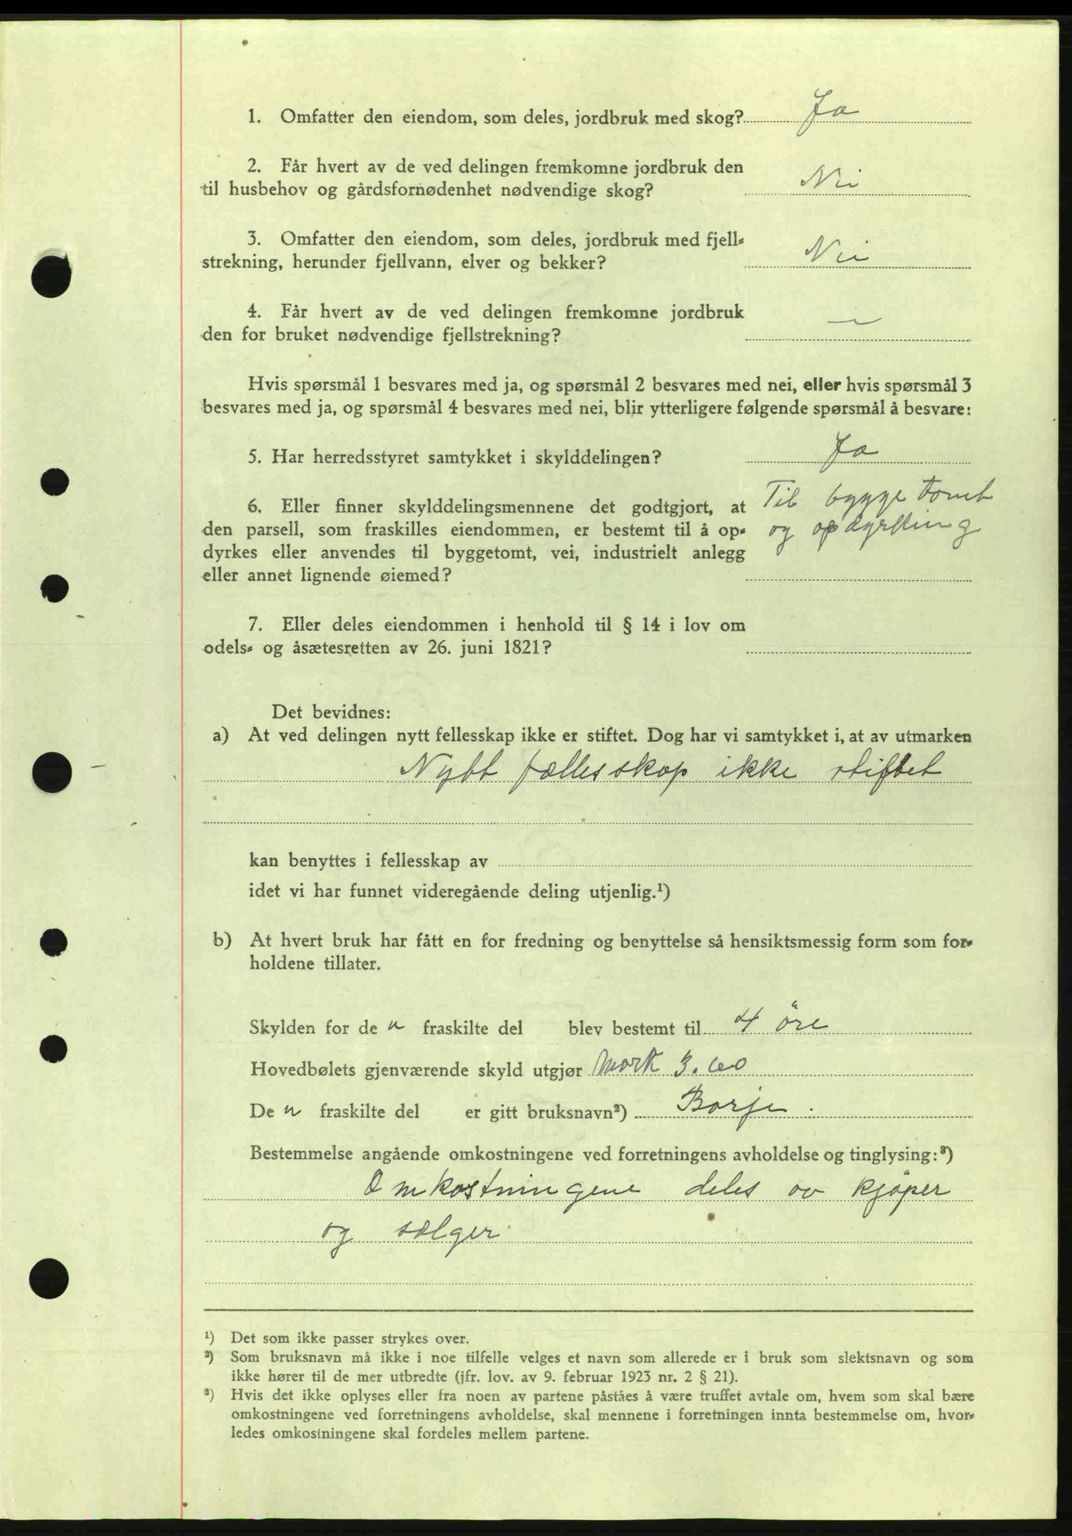 1. Omfatter den eiendom, som deles, jordbruk med skog? Ja
2. Får hvert av de ved delingen fremkomne jordbruk den
til husbehov og gårdsfornødenhet nødvendige skog? Nei
3. Omfatter den eiendom, som deles, jordbruk med fjell-
strekning, herunder fjellvann, elver og bekker? Nei
4. Får hvert av de ved delingen fremkomne jordbruk
den for bruket nødvendige fjellstrekning? —
Hvis spørsmål 1 besvares med ja, og spørsmål 2 besvares med nei, eller hvis spørsmål 3
besvares med ja, og spørsmål 4 besvares med nei, blir ytterligere følgende spørsmål å besvare:
5. Har herredsstyret samtykket i skylddelingen? Ja
6. Eller finner skylddelingsmennene det godtgjort, at Til bygge tomt
den parsell, som fraskilles eiendommen, er bestemt til å op- og opdyrkling
dyrkes eller anvendes til byggetomt, vei, industrielt anlegg
eller annet lignende øiemed?
7. Eller deles eiendommen i henhold til § 14 i lov om
odels- og åsætesretten av 26. juni 1821?
Det bevidnes:
a) At ved delingen nytt fellesskap ikke er stiftet. Dog har vi samtykket i, at av utmarken
Nytt fællesskap ikke stiftet
kan benyttes i fellesskap av
idet vi har funnet videregående deling utjenlig.¹)
b) At hvert bruk har fått en for fredning og benyttelse så hensiktsmessig form som for-
holdene tillater.
Skylden for de n fraskilte del blev bestemt til 4 öre
Hovedbølets gjenværende skyld utgjør Mark 3.60
De n fraskilte del er gitt bruksnavn²) Borje.
Bestemmelse angående omkostningene ved forretningens avholdelse og tinglysing:³)
Omkostningene deles av kjöper
og sælger.
¹) Det som ikke passer strykes over.
²) Som bruksnavn må ikke i noe tilfelle velges et navn som allerede er i bruk som slektsnavn og som
ikke hører til de mer utbredte (jfr. lov. av 9. februar 1923 nr. 2 § 21).
³) Hvis det ikke oplyses eller fra noen av partene påståes å være truffet avtale om, hvem som skal bære
omkostningene ved forretningens avholdelse, skal mennene i forretningen innta bestemmelse om, hvor-
ledes omkostningene skal fordeles mellem partene.